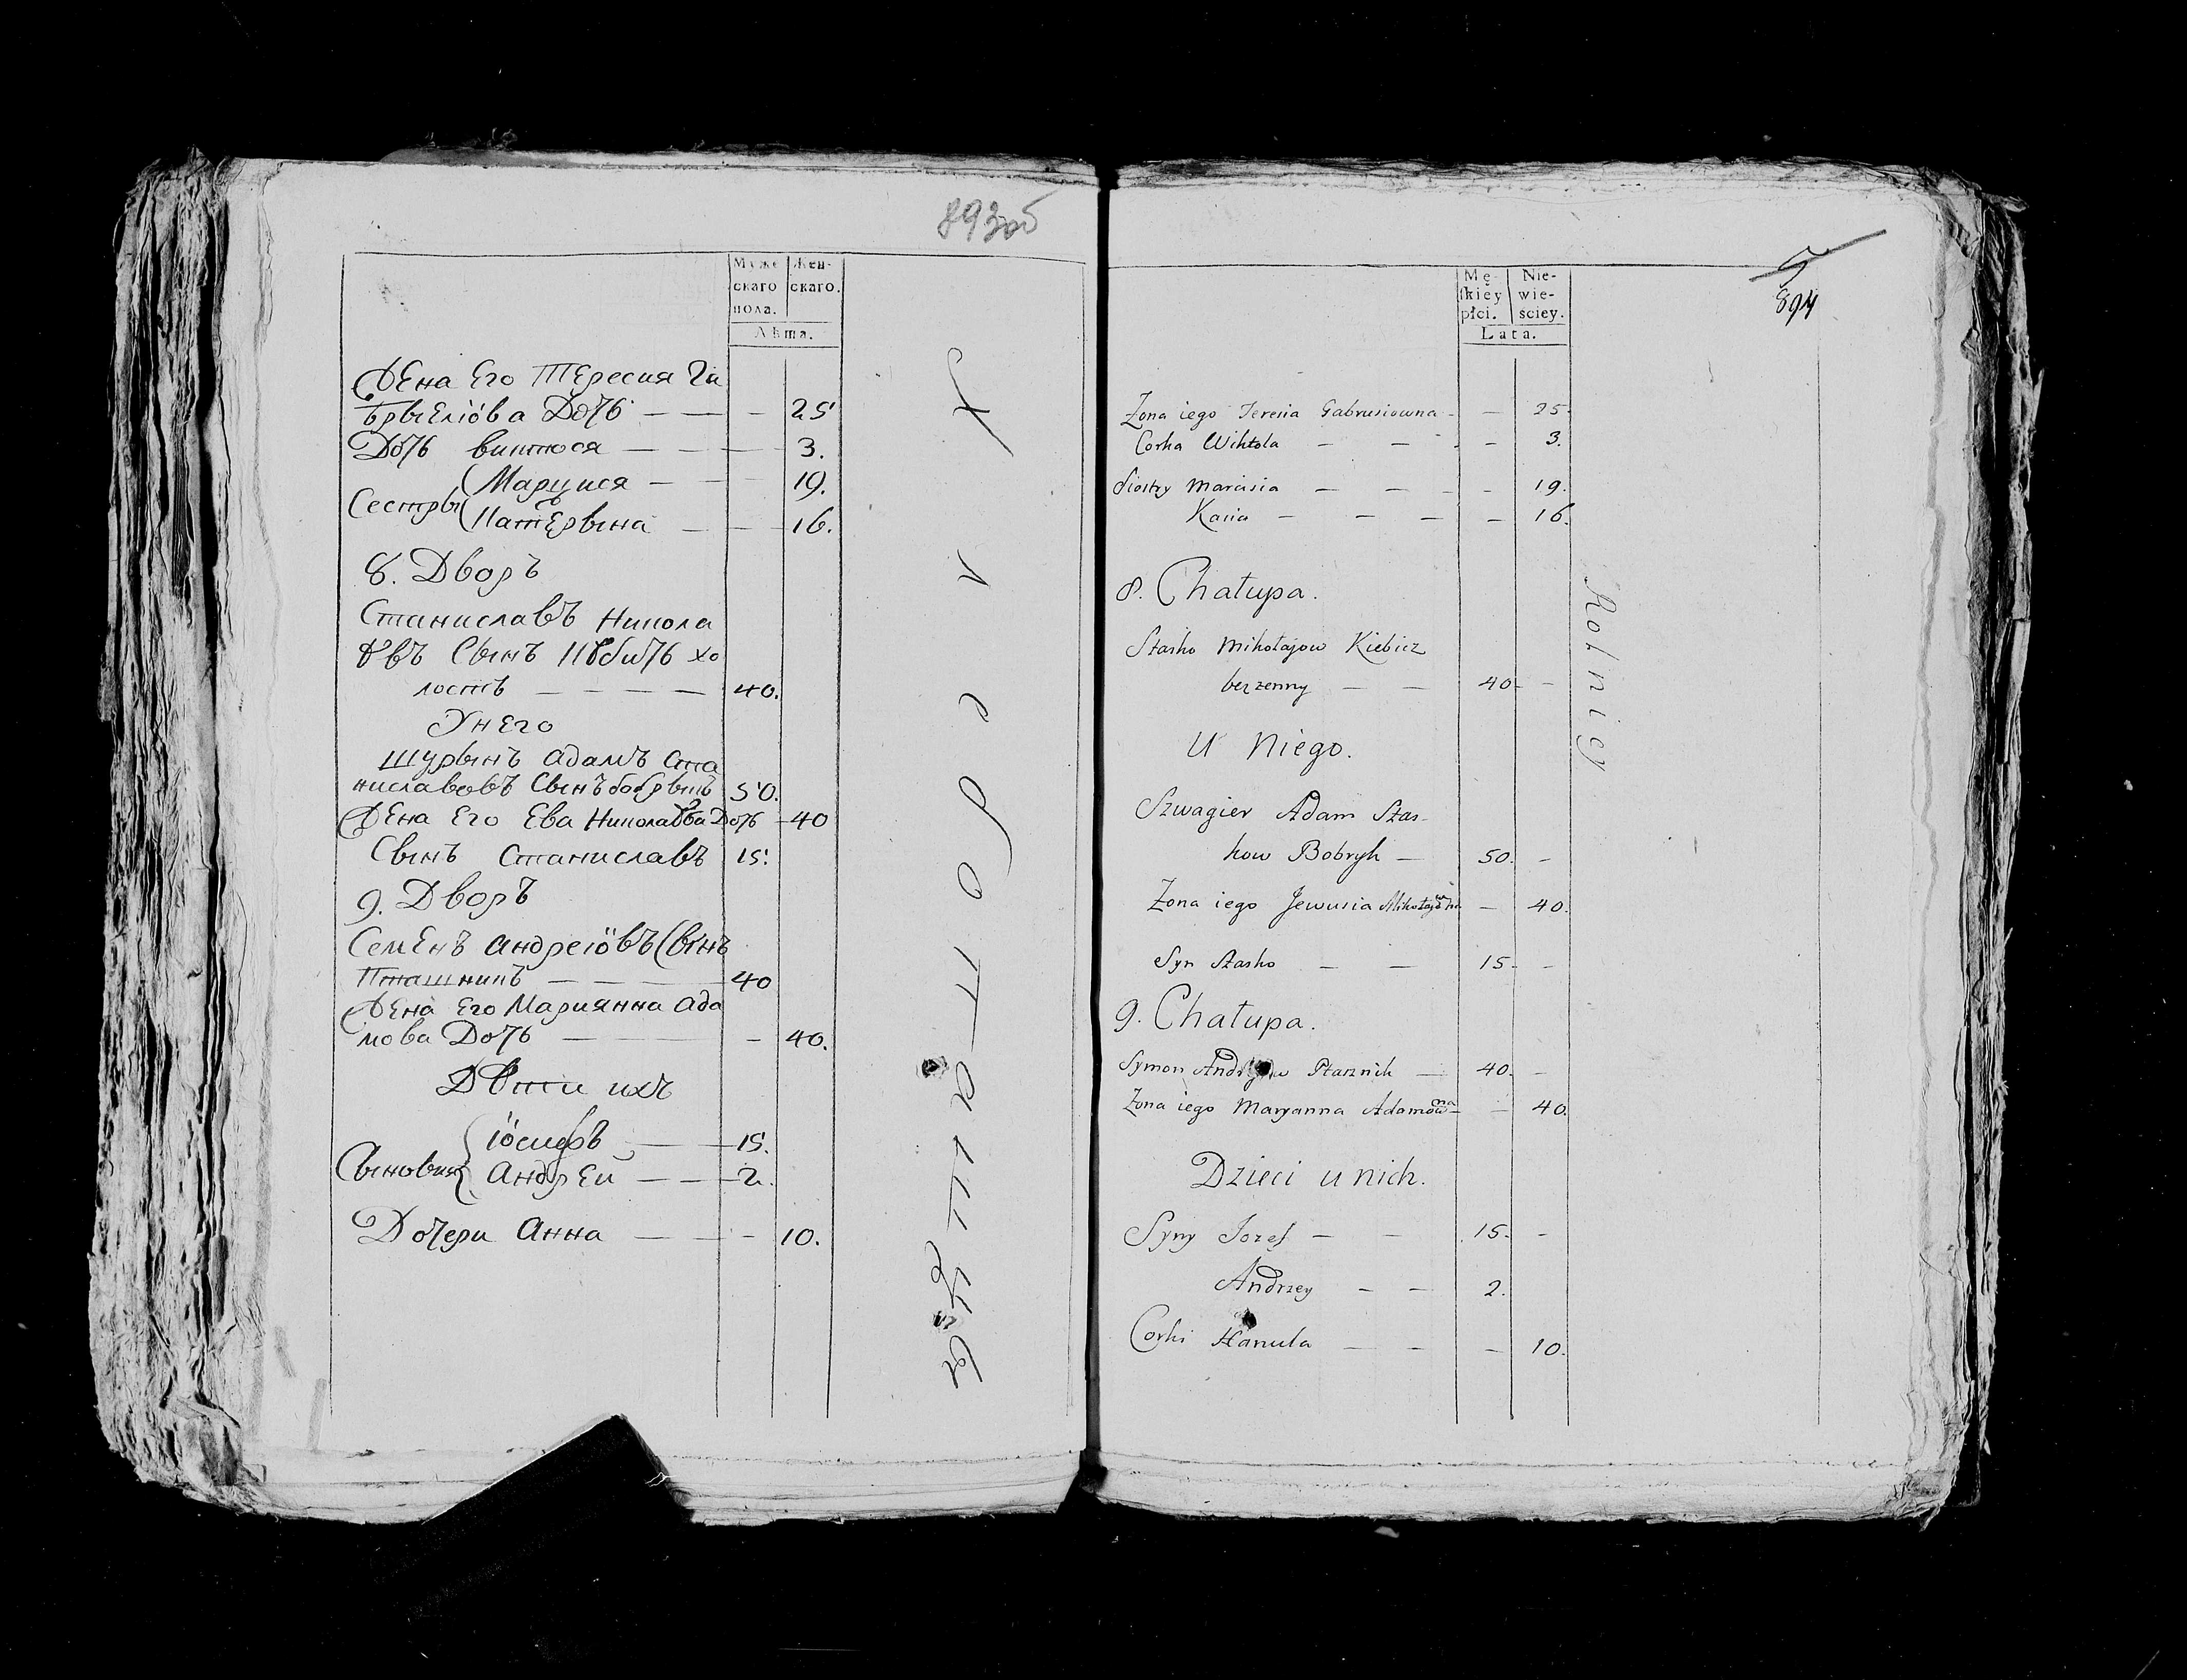 893об
Муже
скаго
пола.
Жен-
скаго.
Лѣта.
Жена Его Тересия Га
брыеліова Дочь — — — 25
Дочь виктося — — — 3.
Марцися — — — 19.
Сестры
Катерына — — 16.
8. Дворъ
Станиславъ Никола
евъ Сынъ Кебичь хо
лостъ — — — — 40.
У него
Шурынъ Адамъ Ста
ниславовъ Сынъ бобрыкъ 50.
Жена Его Ева Николаева Дочь - 40
Сынъ Станиславъ 15.
9. Дворъ
Семенъ андреіовъ Сынъ
Пташникъ — — — 40
Жена Его Марианна Ада
мова Дочь — — — - 40.
Дѣти ихъ
іосифъ — — 15.
Сыновия
Андрей — — — 2.
Дочери Анна — — - 10.
Хлеборо
5
894
Mę-
skiey
płci.
Nie-
wie-
sciey.
Lata.
Zona iego Teresia Gabrusiowna - — 25.
Corka Wiktola — — - - 3.
Siostry Marcisia — — - - 19.
Kasia — — — - 16.
8. Chałupa.
Stasko Mikołajow Kiebicz
bezzenny — — 40. -
U Niego.
Szwagier Adam Stas-
kow Bobryk — 50. -
Zona iego Jewusia Mikołajowna — 40.
Syn Stasko — — 15. -
9. Chałupa.
Symon Ptasznik — 40. -
Zona iego Maryanna Adamowna - — 40.
Dzieci u nich.
Syny Jozef — - 15. -
Andrzey - — 2.
Corki Hanula — - - 10.
Rolniey